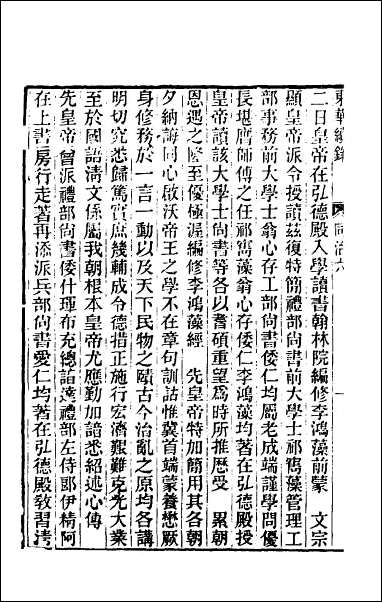 東華續錄 同治六
二日皇帝在弘德殿入學讀書翰林院編修李鴻藻前蒙 文宗
顯皇帝派令授讀茲復特簡禮部尚書前大學士祁寯藻管理工
部事務前大學士翁心存工部尚書倭仁均屬老成端謹學問優
長堪膺師傅之任祁寯藻翁心存倭仁李鴻藻均著在弘德殿授
皇帝讀該大學士尚書等各以耆碩重望爲時所推歷受 累朝
恩遇之隆至優極渥編修李鴻藻經 先皇帝特加簡用其各朝
夕納誨同心啟沃帝王之學不在章句訓詁惟冀首端蒙養懋厥
身修務於一言一動以及天下民物之賾古今治亂之原均各講
明切究悉歸篤實庶幾輔成令德措正施行宏濟艱難克光大業
至於國語清文係屬我朝根本皇帝尤應勤加諳悉紹述心傳
先皇帝曾派禮部尚書倭什琿布充總諳達禮部左侍郎伊精阿
在上書房行走著再添派兵部尚書愛仁均著在弘德殿教習清